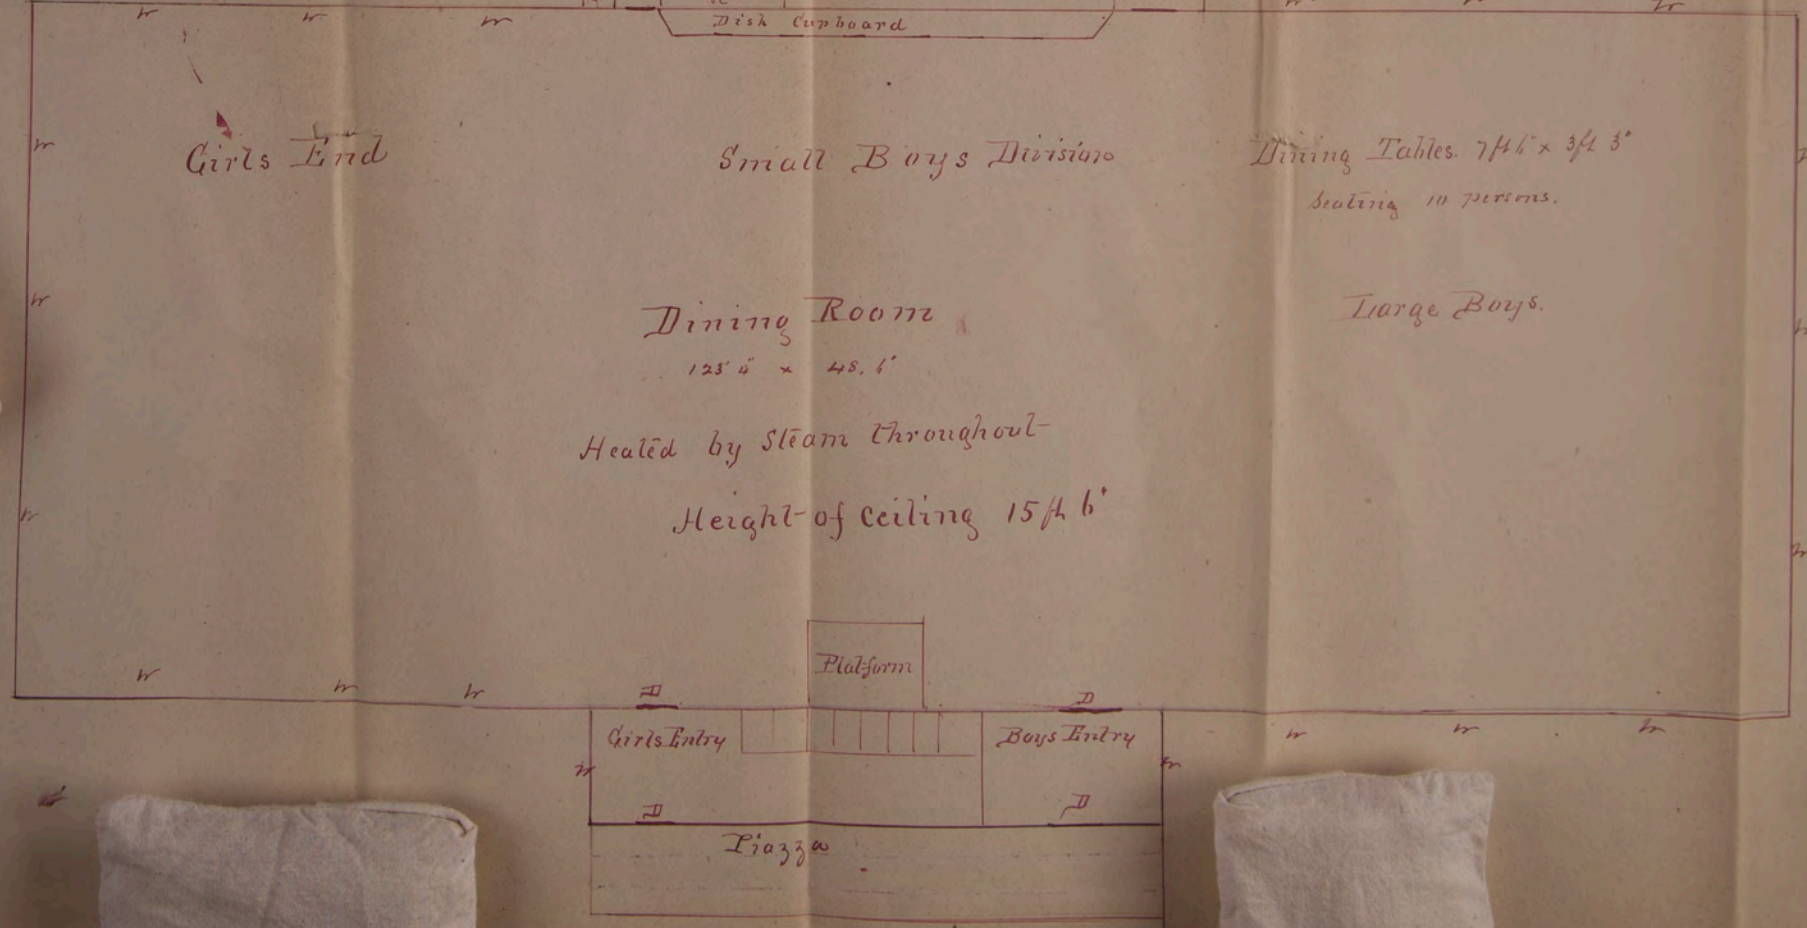 Dish Cupboard
Girls End
Small Boys Division
Dining Tables. 7ft 6" x 3ft 3"
Seating 10 persons.
Dining Room
x 48. 6"
Large Boys.
Heated by Steam throughout
Height of Ceiling 15 ft 6"
Platform
D
D
Girls Entry
Boys Entry
D
D
Piazza